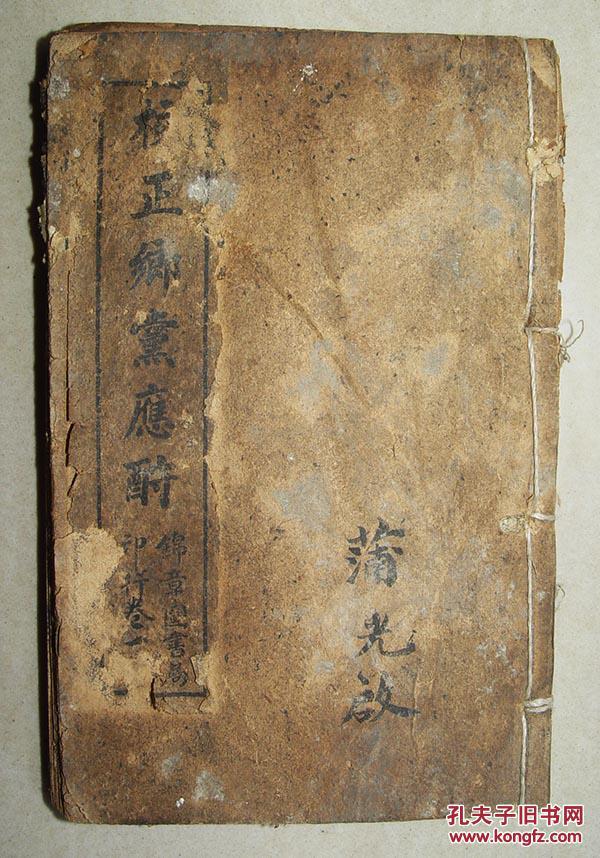 校正鄉黨應酧
錦章圖書局
印行卷一
蒲光啟
孔夫子旧书网
www.kongfz.com